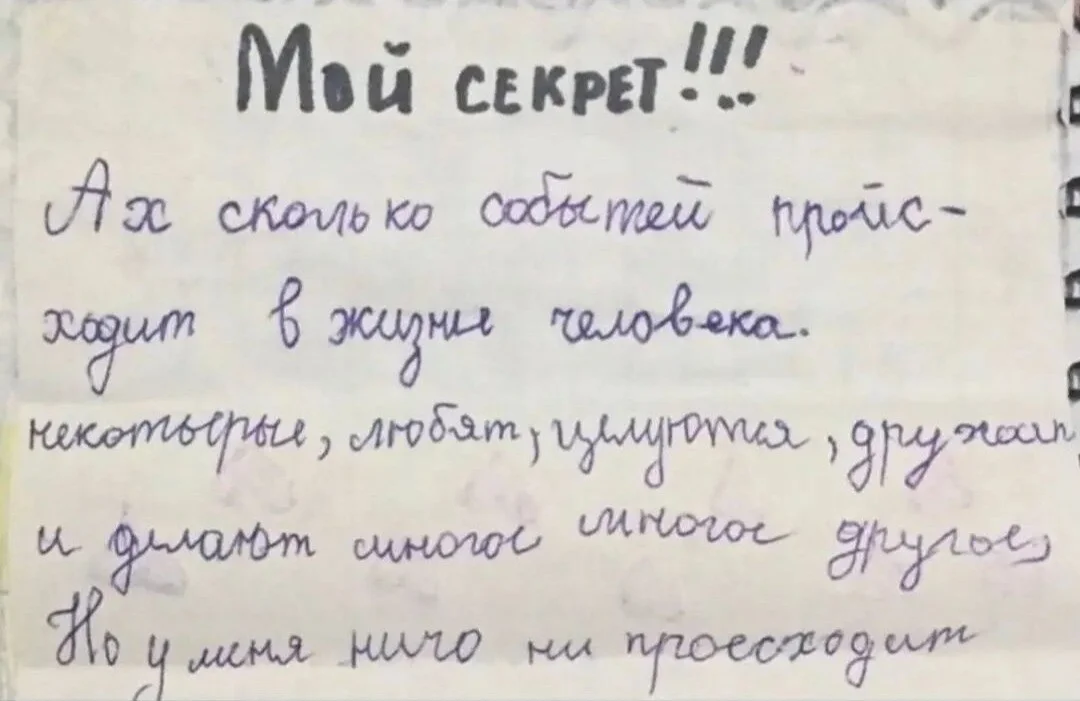 Мой СЕКРЕТ!!!
Ах сколько событей пройс-
ходит в жизне человека.
некотьерые, любят, целуются, дружат
и делают многое многое другое,
Но у меня ничо ни проесходит